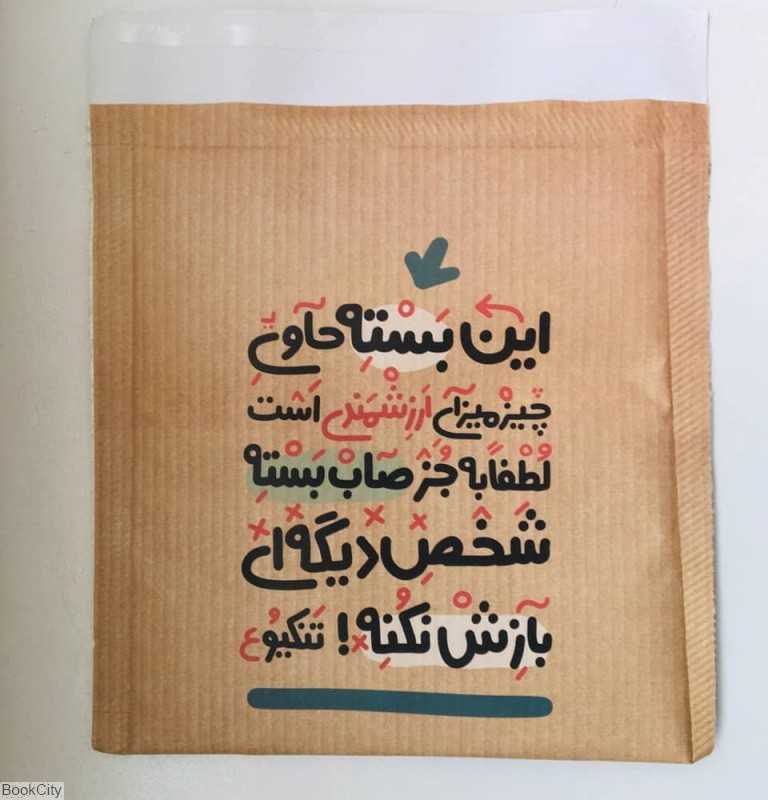 این بَسْتِه حاویِ
چیزمیزآیِ اَرزِشْمَندی اَست
لُطْفاً به جُز صآبْ بَسْتِه
شَخصِ دیگه ای
بآزِشْ نکُنِه! تَنکیوُع
BookCity